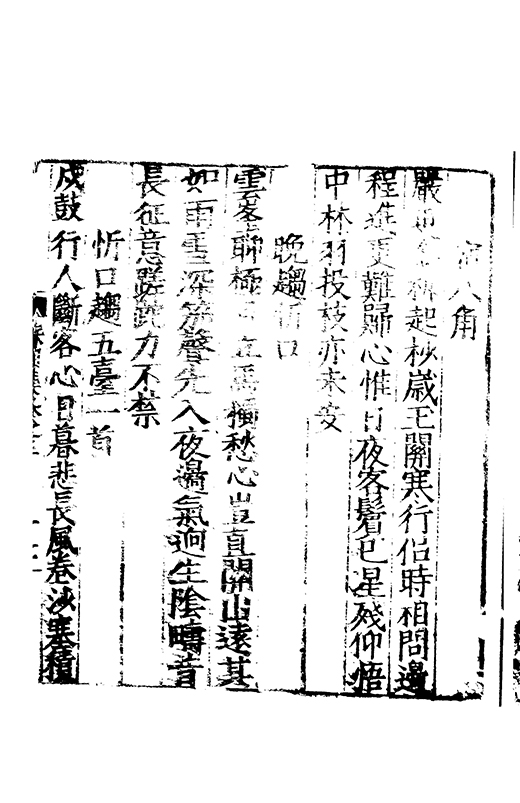 八角
嚴 起杪歲玉關寒行侶時相問邊
程進更難歸心惟日夜客鬢色星殘仰悟
中林羽投 亦未安
晚趨忻口
雲峯聊極 獨愁心豈直關山遠其
如雨雪深笳聲先入夜邊氣迥生陰疇昔
長征意蹉跎力不禁
忻口趨五臺一首
戍鼓行人斷客心日暮悲長風卷沙塞積